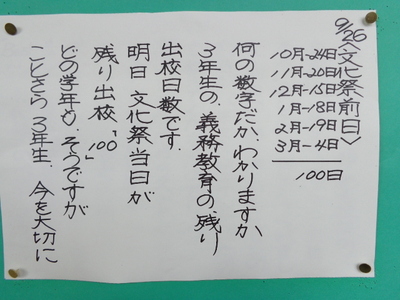 9/26〈文化祭前日〉
10月-24日
11月-20日
12月-15日
1月-18日
2月-19日
3月-4日
100日
何の数字だか、わかりますか
3年生の、義務教育の、残り
出校日数です。
明日 文化祭当日が
残り出校“100”
どの学年も、そうですが
ことさら 3年生、今を大切に